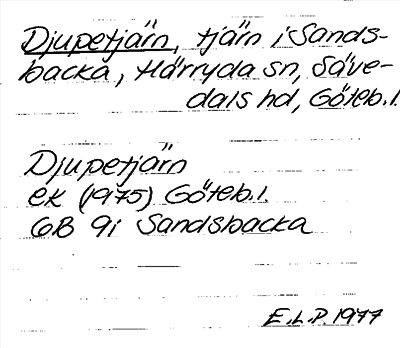 Djupetjärn, tjärn i Sands-
backa, Härryda sn, Säve-
dals hd, Göteb. l.
Djupetjärn
ek (1975) Göteb. l.
6B 9i Sandsbacka
E.L.P. 1977